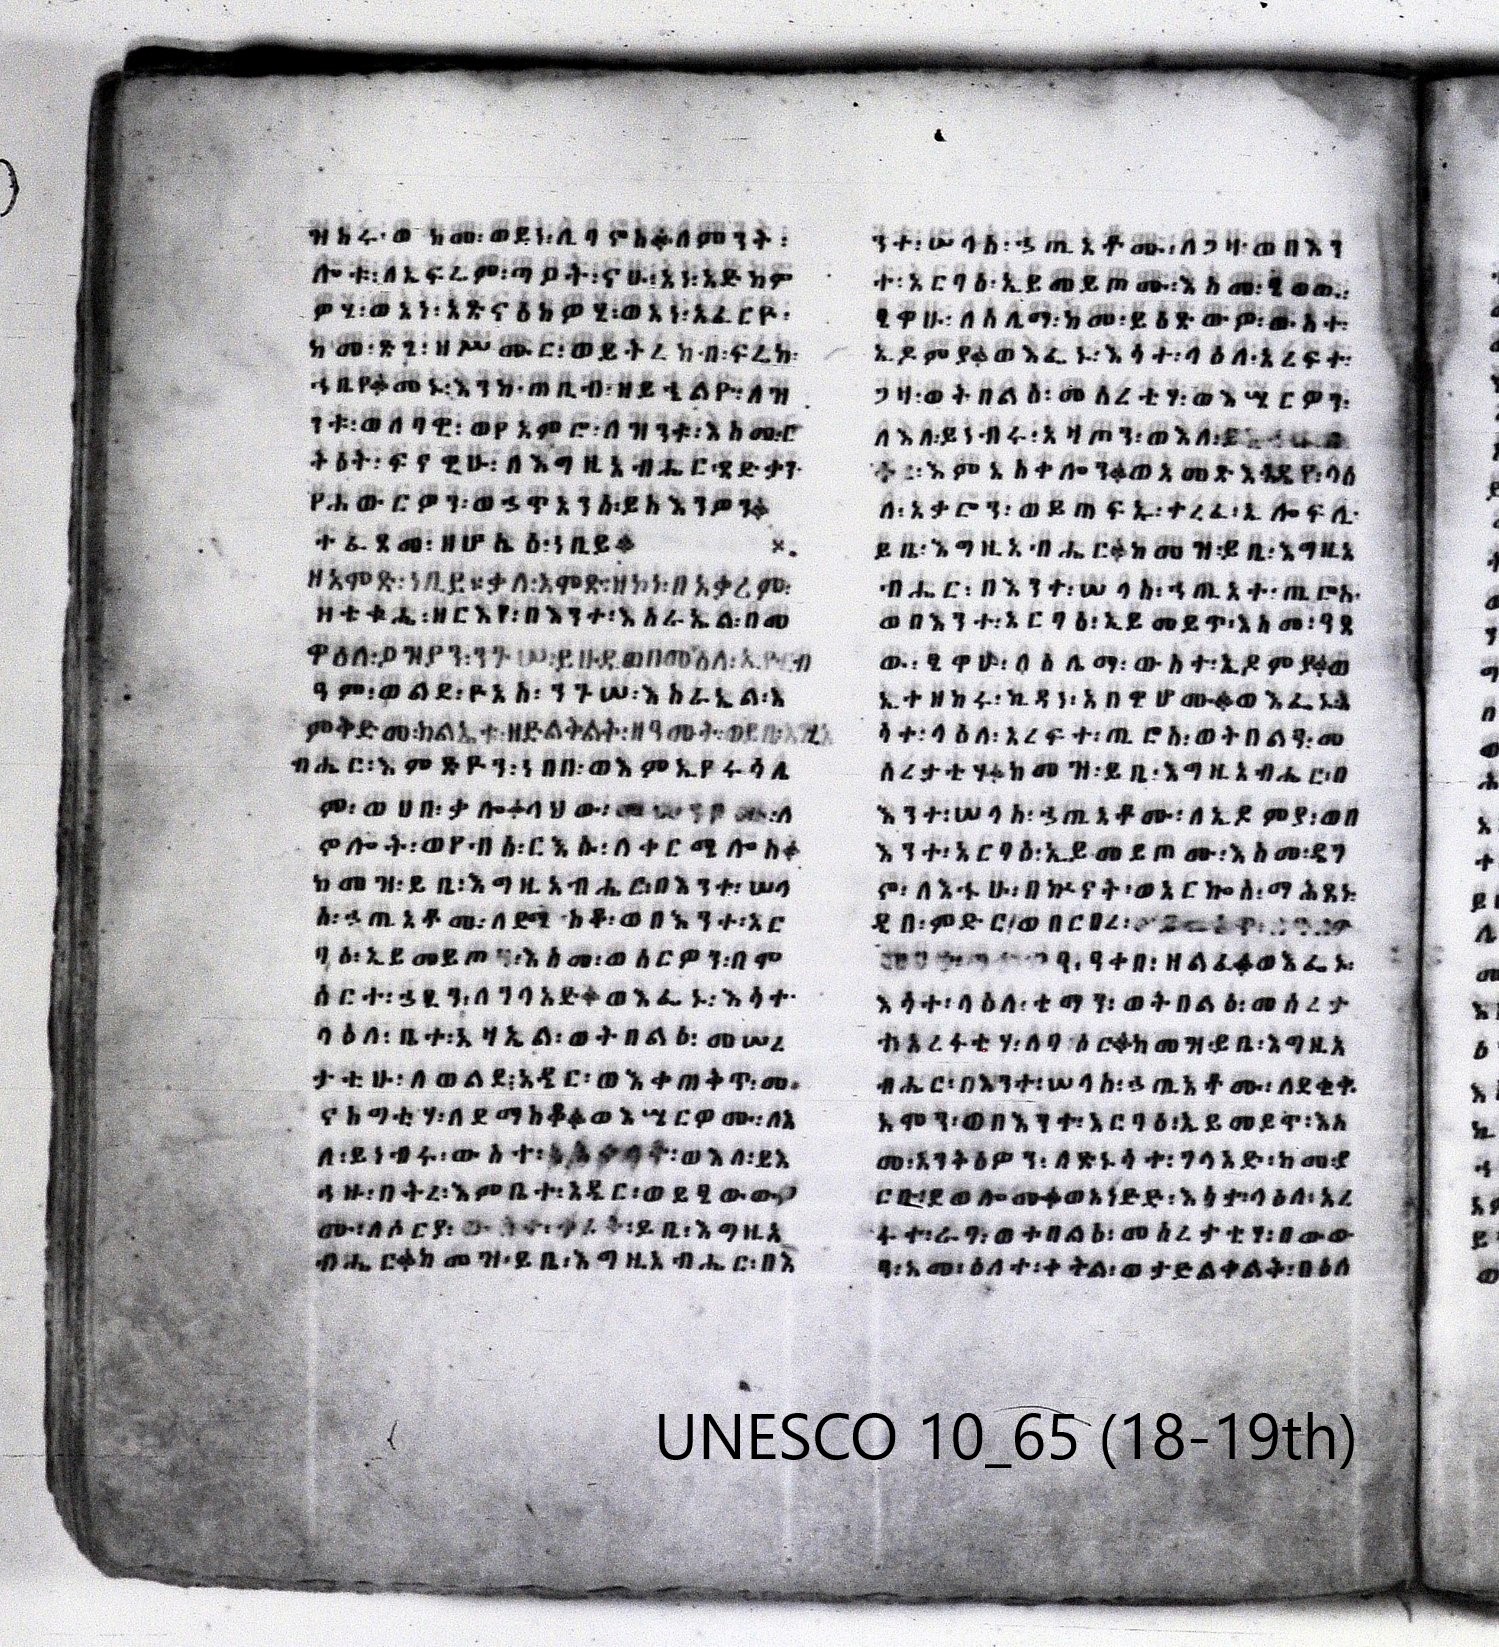 ዝክሩ፡ወ ከመ፡ወይነ፡ሊባኖስ።ለምንት፡
ሎቱ፡ለኤፍሬም፡ጣዖት፡ናሁ፡አነ፡አድከም
ምዎ፡ወአነ፡አጽናዕክምዎ፡ወአነ፡አፈርዮ፡
ከመ፡ጽጌ፡ዘሥሙር፡ወይትረከብ፡ፍሬከ፡
ኀቤየ።መኑ፡እንከ፡ጠቢብ፡ዘይሌልዮ፡ለዝ
ንቱ፡ወለባዊ፡ወየአምሮ፡ለዝንቱ፡እስመ፡ር
ትዕት፡ፍናዊሁ፡ለእግዚአብሔር፡ጻድቃን፡
የሐውርዎን፡ወኃጥአንሰ፡ይስእንዎን።
ተፈጸመ፡ዘሆሴዕ፡ነቢይ።
ዘአሞጽ፡ነቢይ፡ቃለ፡አሞጽ፡ዘኮነ፡በአቃሬም፡
ዘተቁሔ፡ዘርእየ፡በእንተ፡እስራኤል፡በመ
ዋዕለ፡ዖዝያን፡ንጉሠ፡ይሁዳ፡ወበመዕለ፡ኢዮርብ
ዓም፡ወልደ፡ዮአስ፡ንጉሠ፡እስራኤል፡እ
ምቅድመ፡ክልኤቱ፡ዘድልቅልቅ፡ዘዓመት፡ወይቤ፡
ብሔር፡እምጽዮን፡ነበበ፡ወእምኢየሩሳሌ
ም፡ወሀበ፡ቃሎ።ላህው፡
ኖሎት፡ወየብሰ፡ርእሱ፡ለቀርሜሎስ።
ከመዝ፡ይቤ፡እግዚአብሔር፡በእንተ፡ሠላ
ስ፡ኃጢአቶሙ፡ለደማስቆ፡ወበእንተ፡አር
ባዕ፡ኢይመይጦሙ፡እስመ፡ወሰርዎን፡በሞ
ሰርተ፡ኃፂን፡ለገላአድ።ወእፌኑ፡እሳተ፡
ላዕለ፡ቤተ፡አዛኤል፡ወትበልዕ፡መሠረ
ታቲሁ፡ለወልደ፡አዴር፡ወእቀጠቅጥ፡መ
ናስግቲሃ፡ለደማስቆ።ወእሤርዎሙ፡ለእ
ለ፡ይነብሩ፡ውስተ፡ ወእለ፡ይእ
ኅዙ፡በትረ፡እምቤተ፡አዴር፡ወይፄውውዎ
ሙ፡ለሶርያ፡ ይቤ፡እግዚአ
ብሔር።ከመዝ፡ይቤ፡እግዚአብሔር፡በእ
ንተ፡ሠላስ፡ኃጢአቶሙ፡ለጋዛ፡ወበእን
ተ፡አርባዕ፡ኢይመይጦሙ፡እስመ፡ፄወዉ፡
ፄዋሁ፡ለሰሊማ፡ከመ፡ይዕጽውዎ፡ውስተ፡
ኤዶምያ።ወእፌኑ፡እሳተ፡ላዕለ፡አረፍተ፡
ጋዛ፡ወትበልዕ፡መሰረቲሃ፡ወእሤርዎን፡
ለእለ፡ይነብሩ፡አዛጦን፡ወእለ፡
እምአስቀሎን።ወአመጽእ እዴየ፡ላዕ
ለ፡አቃሮን፡ወይጠፍኡ፡ተረፈ፡ኢሎፍሊ፡
ይቤ፡እግዚአብሔር።ከመዝ፡ይቤ፡እግዚአ
ብሔር፡በእንተ፡ሠላስ፡ኃጢአተ፡ጢሮስ፡
ወበእንተ፡አርባዕ፡ኢይመይጥ፡እስመ፡ዓጸ
ው፡ፄዋሁ፡ሰዕሊማ፡ውስተ፡ኤዶምያ።ወ
ኢተዘከሩ፡ኪዳነ፡አበዊሆሙ።ወእፌኑ፡እ
ሳተ፡ላዕለ፡አረፍተ፡ጢሮስ፡ወትበልዓ፡መ
ሰረታቲሃ።ከመዝ፡ይቤ፡እግዚአብሔር፡በ
እንተ፡ሠላስ፡ኃጢአቶሙ፡ለኤዶምያ፡ወበ
እንተ፡አርባዕ፡ኢይመይጦሙ፡እስመ፡ዴገ
ኖ፡ለእኁሁ፡በኵናት፡ወአርኰሰ፡ማሕፀነ፡
ዲበ፡ምድር፡ወበርበረ፡
ዓቀበ፡ዘልፈ።ወእፌኑ፡
እሳተ፡ላዕለ፡ቴማን፡ወትበልዕ፡መሰረታ
ተ፡አረፋቲሃ፡ለባሶር።ከመዝ፡ይቤ፡እግዚአ
ብሔር፡በእንተ፡ሠላስ፡ኃጢአቶሙ፡ለደቂቀ፡
አሞን፡ወበእንተ፡አርባዕ፡ኢይመይጥ፡እስ
መ፡አንቅዕዎን፡ለጽኑሳተ፡ገላአድ፡ከመ፡ያ
ርቢ፡ደወሎሙ።ወእነድድ፡እሳተ፡ላዕለ፡አረ
ፋተ፡ራባ፡ወተበልዕ፡መሰረታቲሃ፡በው
ዓ፡እመ፡ዕለተ፡ቀትል፡ወታድልቀልቅ፡በዕለ
UNESCO 10_65 (18-19th)